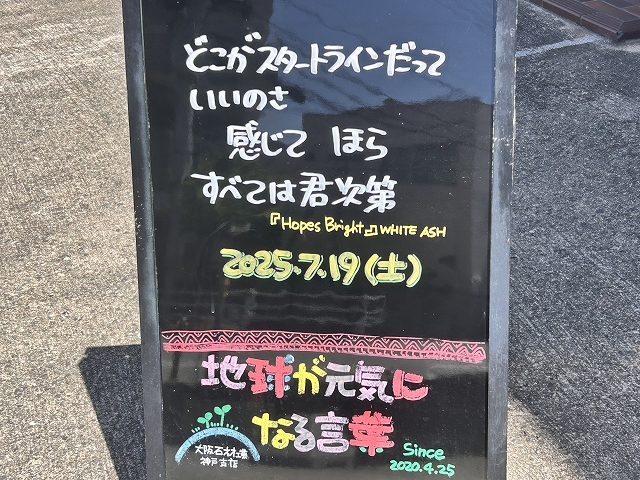 どこがスタートラインだって
いいのさ
感じて ほら
すべては君次第
『Hopes Bright』WHITE ASH
2025.7.19(土)
地球が元気に
なる言葉
大阪石材工業
神戸支店
Since
2020.4.25